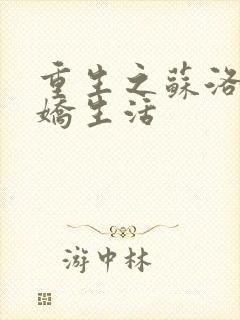 重生之蘇洛
嬌生活
游中林